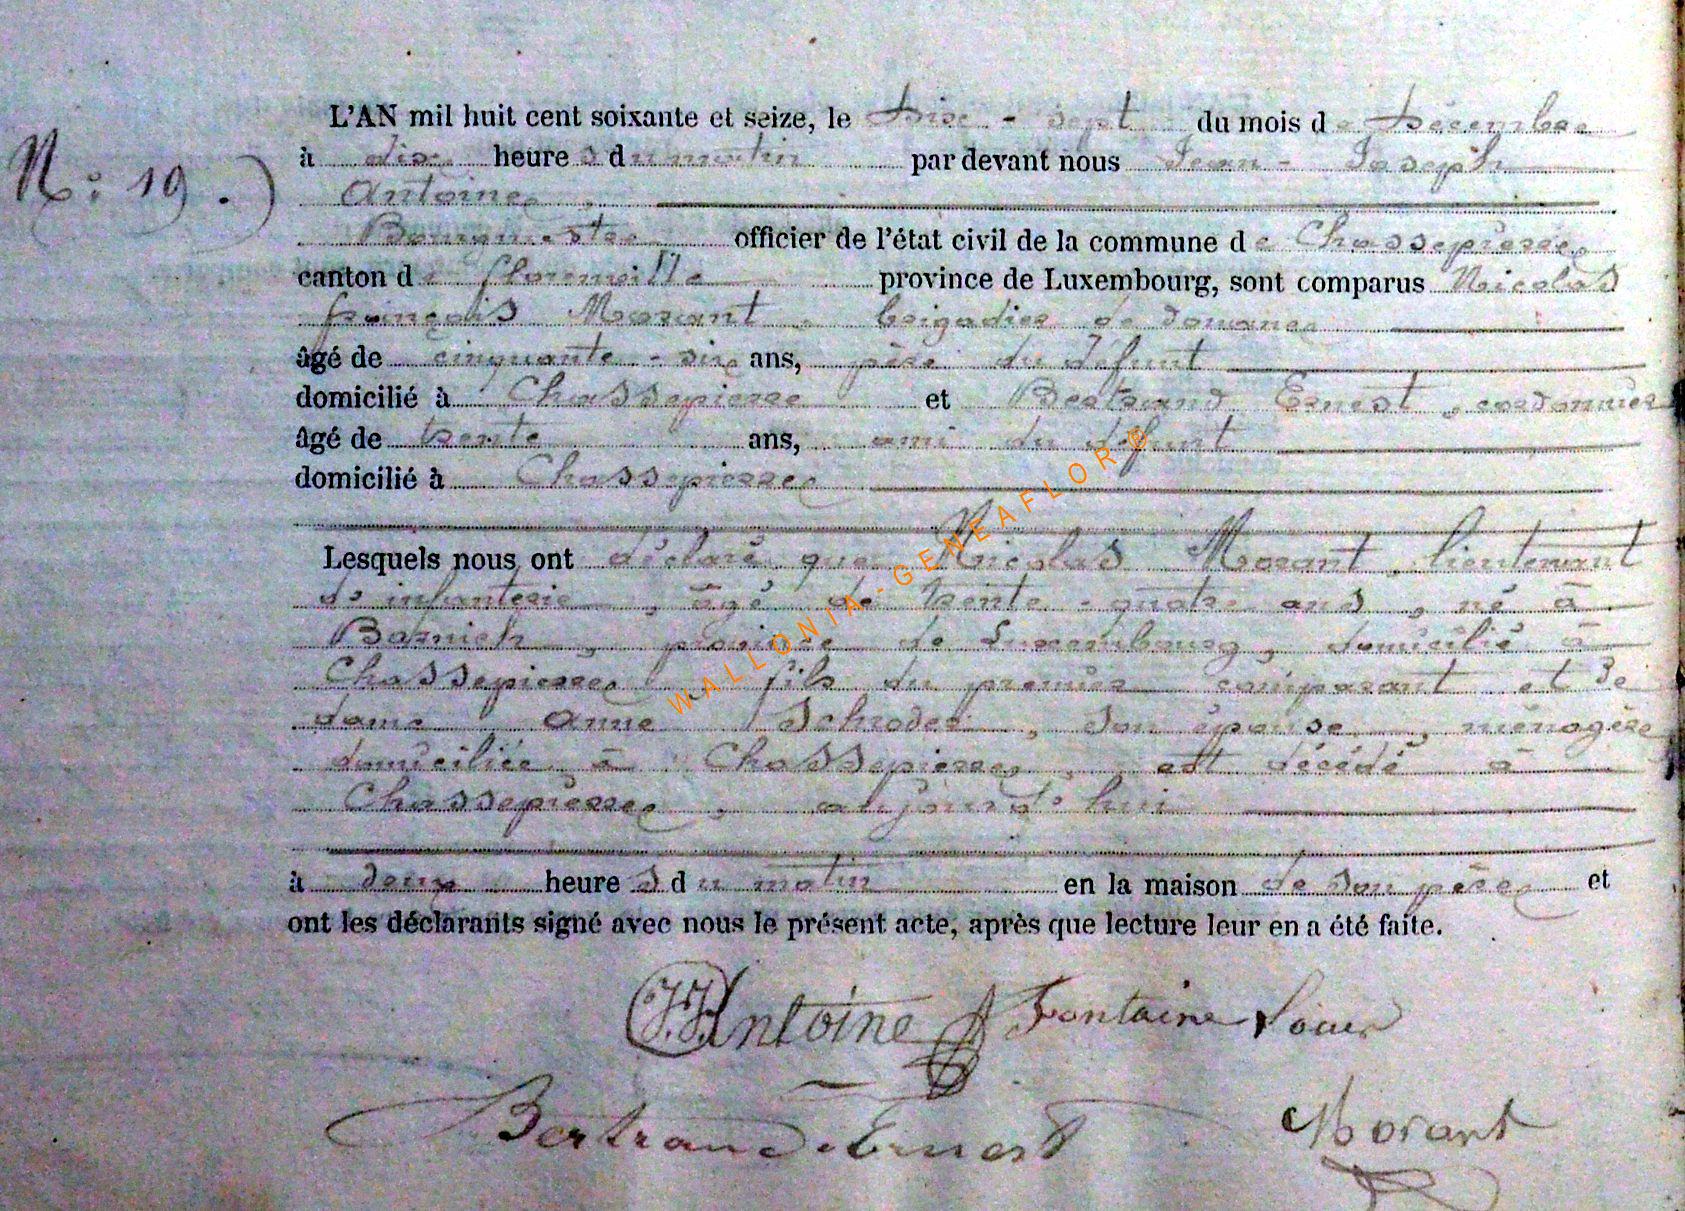 L'AN mil huit cent soixante et seize, le dix - sept du mois de Décembre
N.: 19.) à dix heures du matin par devant nous Jean - Joseph
Antoine,
Bourgmestre officier de l'état civil de la commune de Chassepierre,
canton de Florenville province de Luxembourg, sont comparus Nicolas
françois Morant, brigadier de douanes
âgé de cinquante - six ans, père du défunt
domicilié à Chassepierre et Bertrand Ernest, cordonnier
âgé de trente ans, ami du défunt
domicilié à Chassepierre
Lesquels nous ont déclaré que Nicolas Morant, lieutenant
d'infanterie, âgé de trente - quatre ans, né à
Barnich, province de Luxembourg, domicilié à
Chassepierre, fils du premier comparant et de
dame Anne Schroder, son épouse, ménagère
domiciliée à Chassepierre, est décédé à
Chassepierre, aujourd'hui
à deux heures du matin en la maison de son père, et
ont les déclarants signé avec nous le présent acte, après que lecture leur en a été faite.
J.J. Antoine Fontaine
Bertrand Ernest Morant
WALLONIA-GENEAFLOR®